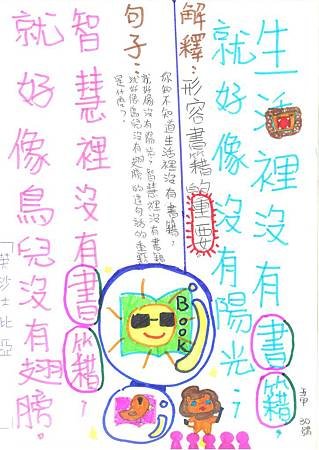 生活裡沒有書籍，
就好像沒有陽光；
解釋：形容書籍的重要
句子：
你知不知道生活裡沒有書籍，
就好像沒有陽光；智慧裡沒有書籍
就好像鳥兒沒有翅膀的這句話的重點
是什麼？
智慧裡沒有書籍，
就好像鳥兒沒有翅膀。
莎士比亞
BOOK
30號